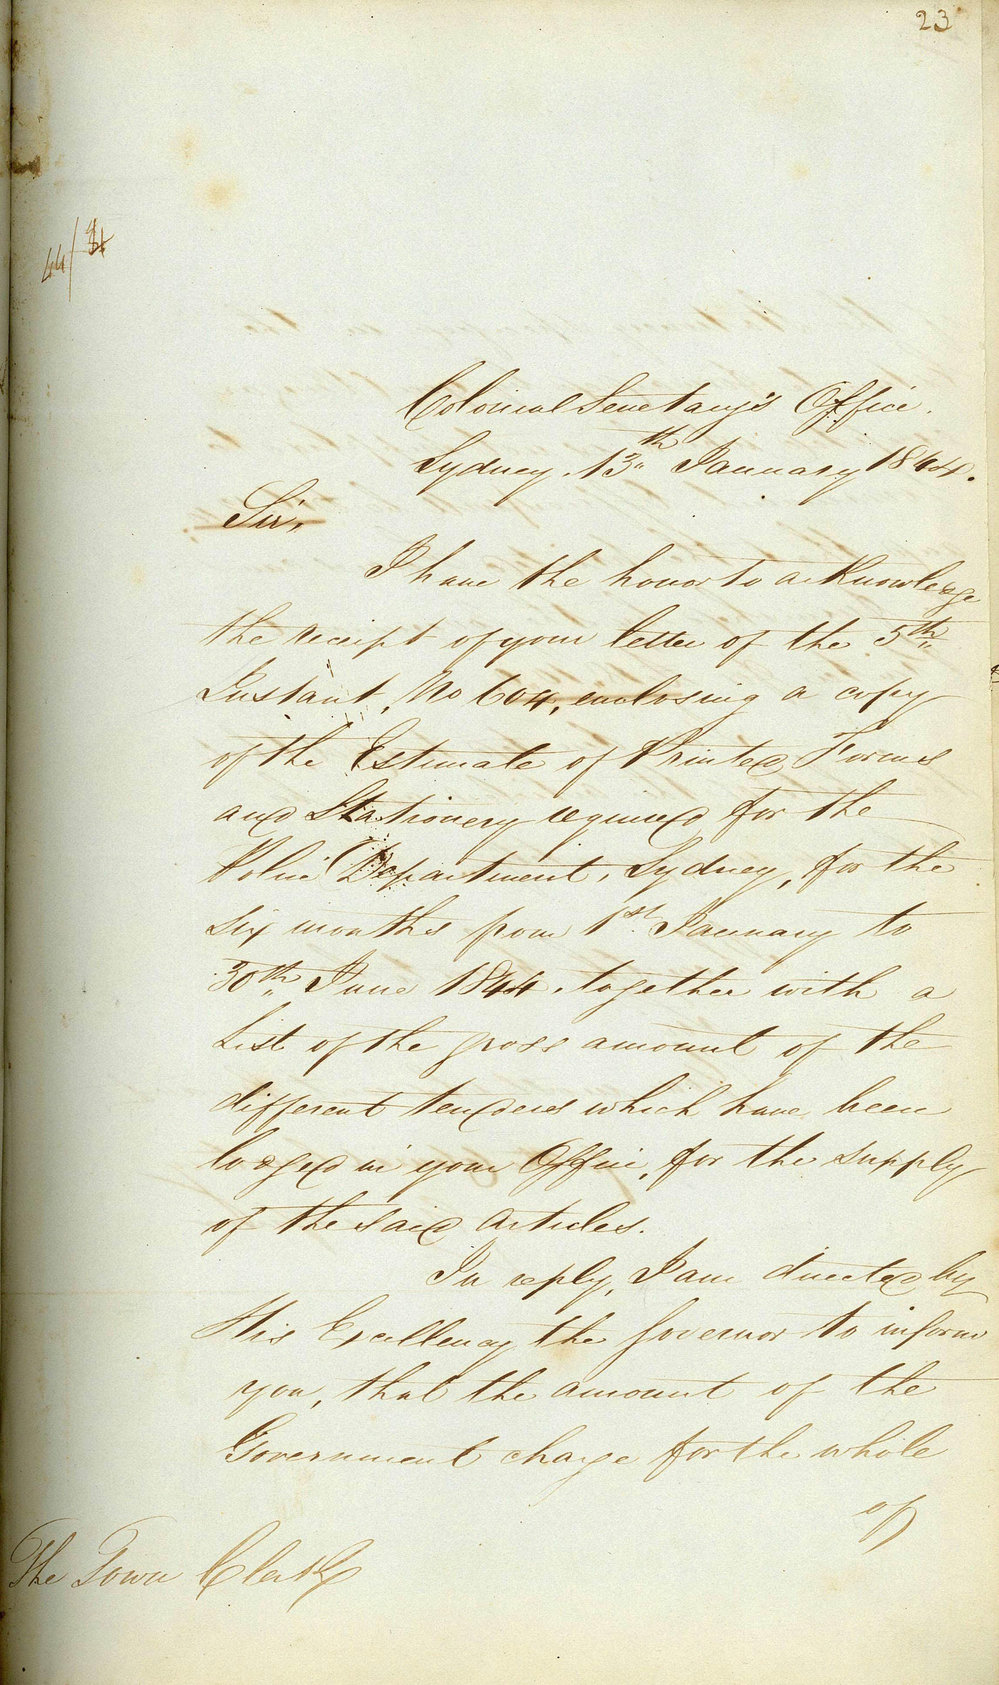 23
44/
Colonial Secretary's Office.
Sydney. 13th January 1844.
Sir,
I have the honor to acknowledge
the receipt of your letter of the 5th
Instant, No 604, enclosing a copy
of the Estimate of Printed Forms
and Stationery required for the
Police Department, Sydney, for the
six months from 1st January to
30th June 1844. together with a
List of the gross amount of the
different tenders which have been
lodged in your Office, for the supply
of the said Articles.
In reply, I am directed by
His Excellency the Governor to inform
you, that the amount of the
Government charge for the whole
of
The Town Clerk